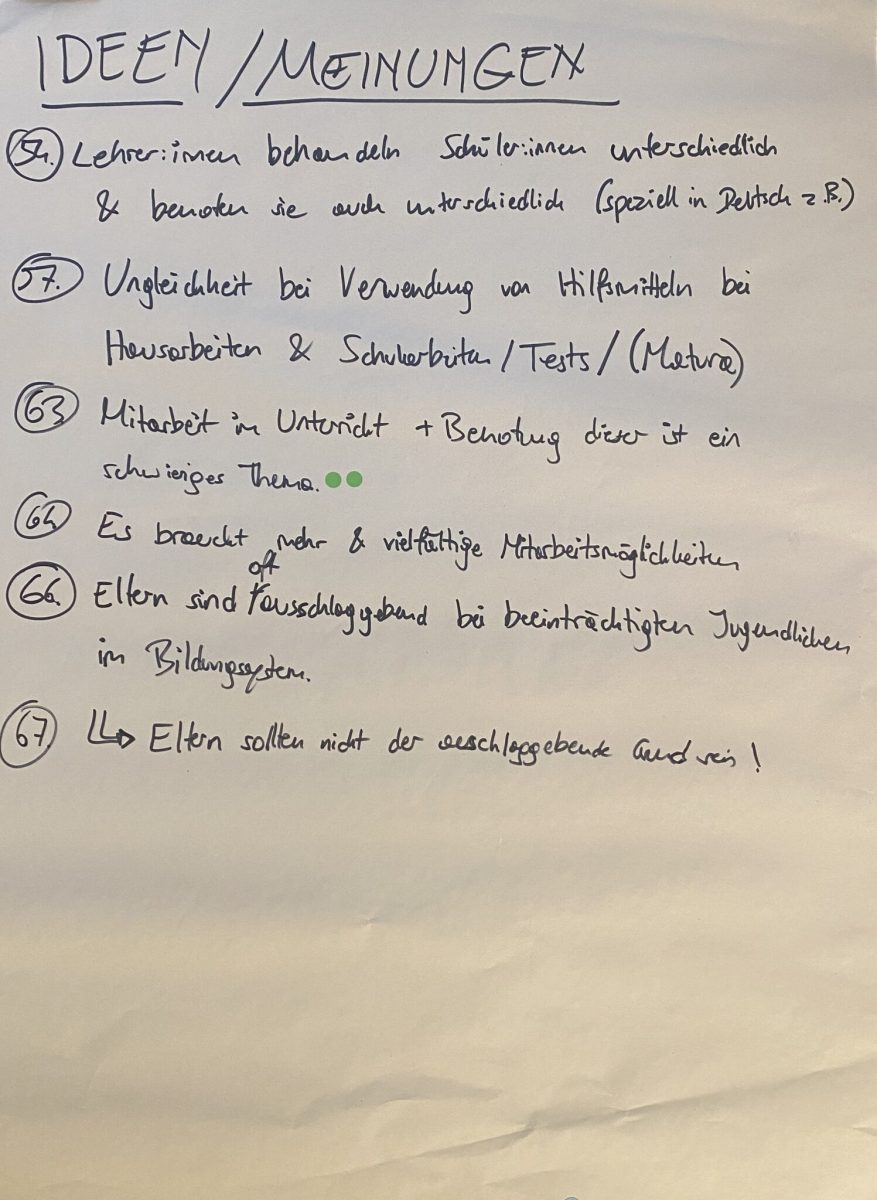 IDEEN / MEINUNGEN
54. Lehrer:innen behandeln Schüler:innen unterschiedlich
& benoten sie auch unterschiedlich (speziell in Deutsch z.B.)
57. Ungleichheit bei Verwendung von Hilfsmitteln bei
Hausarbeiten & Schularbeiten / Tests / (Matura)
63 Mitarbeit im Unterricht + Benotung dieser ist ein
schwieriges Thema.
64 Es braucht mehr & vielfältige Mitarbeitsmöglichkeiten
66. Eltern sind oft ausschlaggebend bei beeinträchtigten Jugendlichen
im Bildungssystem.
67 ↳ Eltern sollten nicht der ausschlaggebende Grund sein!